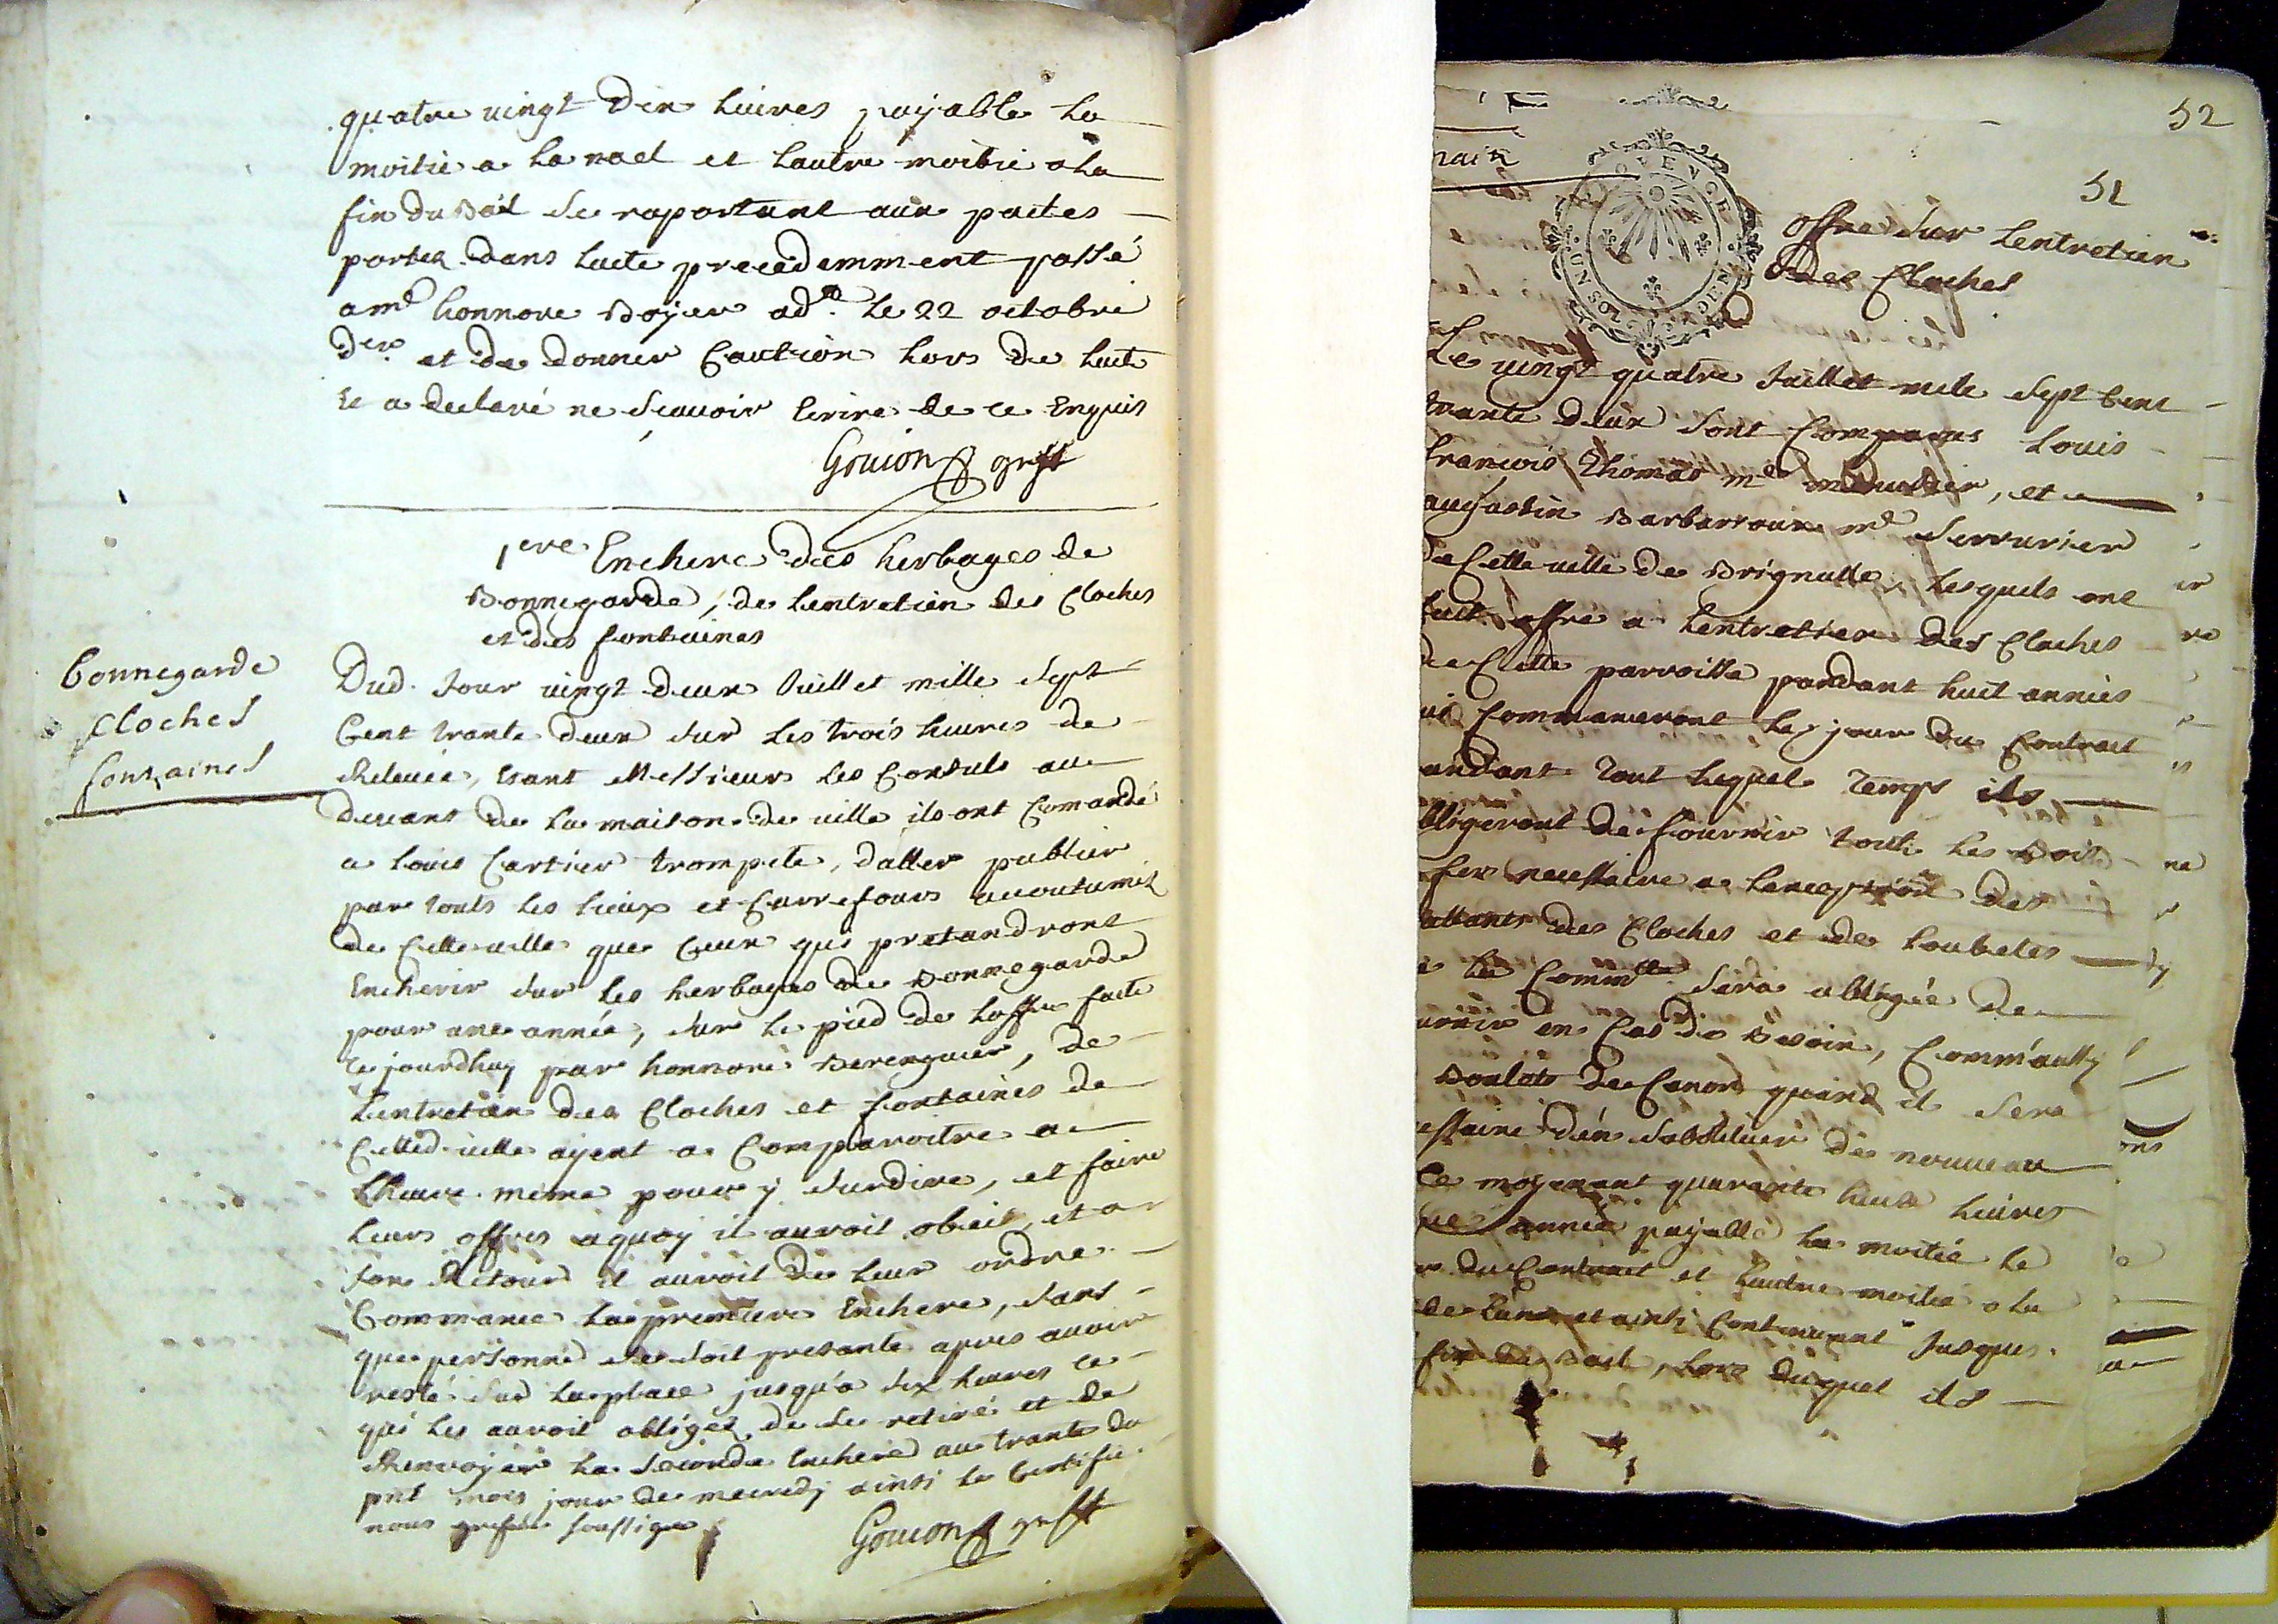 quatre vingt dix livres payable la
moitié a la noel et lautre moitié a la
fin du bail se raportant aux pactes
portés dans lacte precedemment passé
a me honnoré Boyer ad. le 22 octobre
der et de donner Caution lors de lacte
Et a declaré ne scavoir Ecrire de ce Enquis
Gouion greff
1ere Enchere des herbages de
Bonnegarde, de lentretien des Cloches
et des fontaines
bonnegarde
cloches
fontaines
Dud. jour vingt deux Juillet mille sept
Cent trante deux sur les trois heures de
Relevée, Etant Messieurs les Consuls au
devant de la maison de ville ils ont Comandé
a louis Cartier trompete, daller publier
par touts les lieux et Carrefours accoutumés
de Cette ville que Ceux qui pretandront
Encherir sur les herbages de Bonnegarde
pour une année, sur le pied de loffre faite
cejourdhuy par honnoré Berenguier, de
Lentretien des Cloches et fontaines de
Cetted. ville ayent a Comparoitre a
Lheure meme pour y surdire, et faire
leurs offres aquoy il auroit obeit, et a
son Retour il auroit de leur ordre
Commancé la premiere Enchere, sans
que personne se soit presanté apres avoir
resté sur la place jusqu'a six heures ce
qui les auroit obligés de se retiré et de
Renvoyer la seconde Enchere au trante du
pnt mois jour de mecredj ainsi le Certifie
nous greffier soussigne
Gouion greff
52
51
offre sur lentretien
des Cloches
Le vingt quatre Juillet mile sept Cent
trante deux sont Comparus Louis
francois Thomas me menuisier, et
augustin Barbarroux me serrurier
de Cette ville de Brignolle, lesquels ont
fait offre a lentretien des Cloches
de Cette parroisse pandant huit années
qui Commanceront le jour du Contract
pandant tout lequel temps ils
obligeront de fournir tout le bois
fer necessaire a lexception des
battants des Cloches et de
la Commté sera obligée de
en Cas de besoin, Comm'aussy
Boulets de Canon quand il sera
necessaire d'en substituer de nouveau
Ce moyenant quarante huit livres
année payable la moitié le
du Contract et lautre moitié a la
de lan et ainsi Continuant Jusques
fin du Bail, lors duquel ils